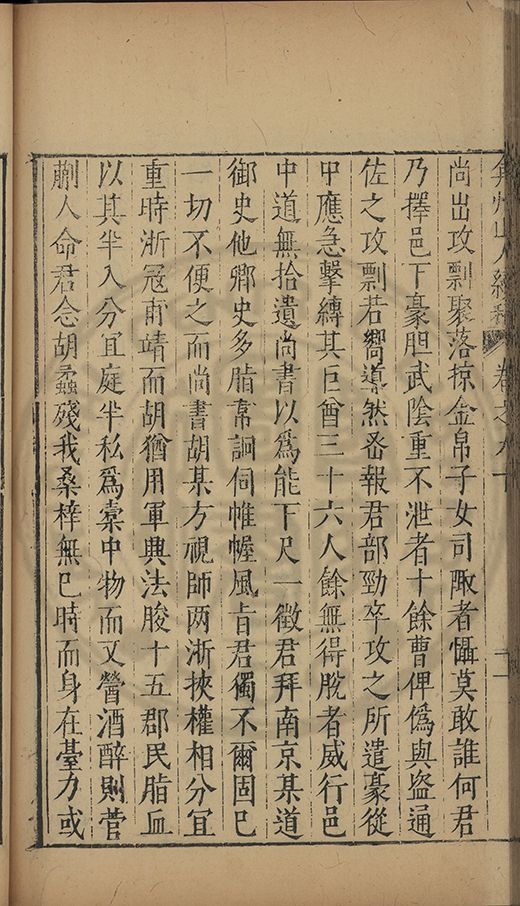 弇州山人續稿 卷之九十 十二
尚出攻剽聚落掠金帛子女司陬者懾莫敢誰何君
乃擇邑下豪胆武陰重不泄者十餘曹俾偽與盜通
佐之攻剽若嚮導然番報君部勁卒攻之所遣豪從
中應急擊縛其巨酋三十六人餘無得脫者威行邑
中道無拾遺尚書以爲能下尺一徵君拜南京某道
御史他鄉史多脂韋詗伺帷幄風旨君獨不爾固已
一切不便之而尚書胡某方視師两浙挾權相分宜
重時浙寇甫靖而胡猶用軍興法朘十五郡民脂血
以其半入分宜庭半私爲橐中物而又醟酒醉則菅
蒯人命君念胡蟊殘我桑梓無已時而身在臺力或